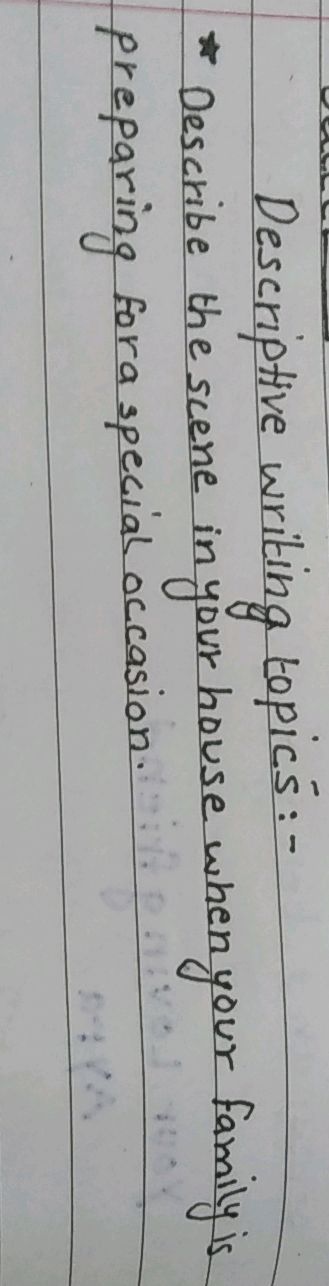 Descriptive writing topics :-
* Describe the scene in your house when your family is
preparing for a special occasion.